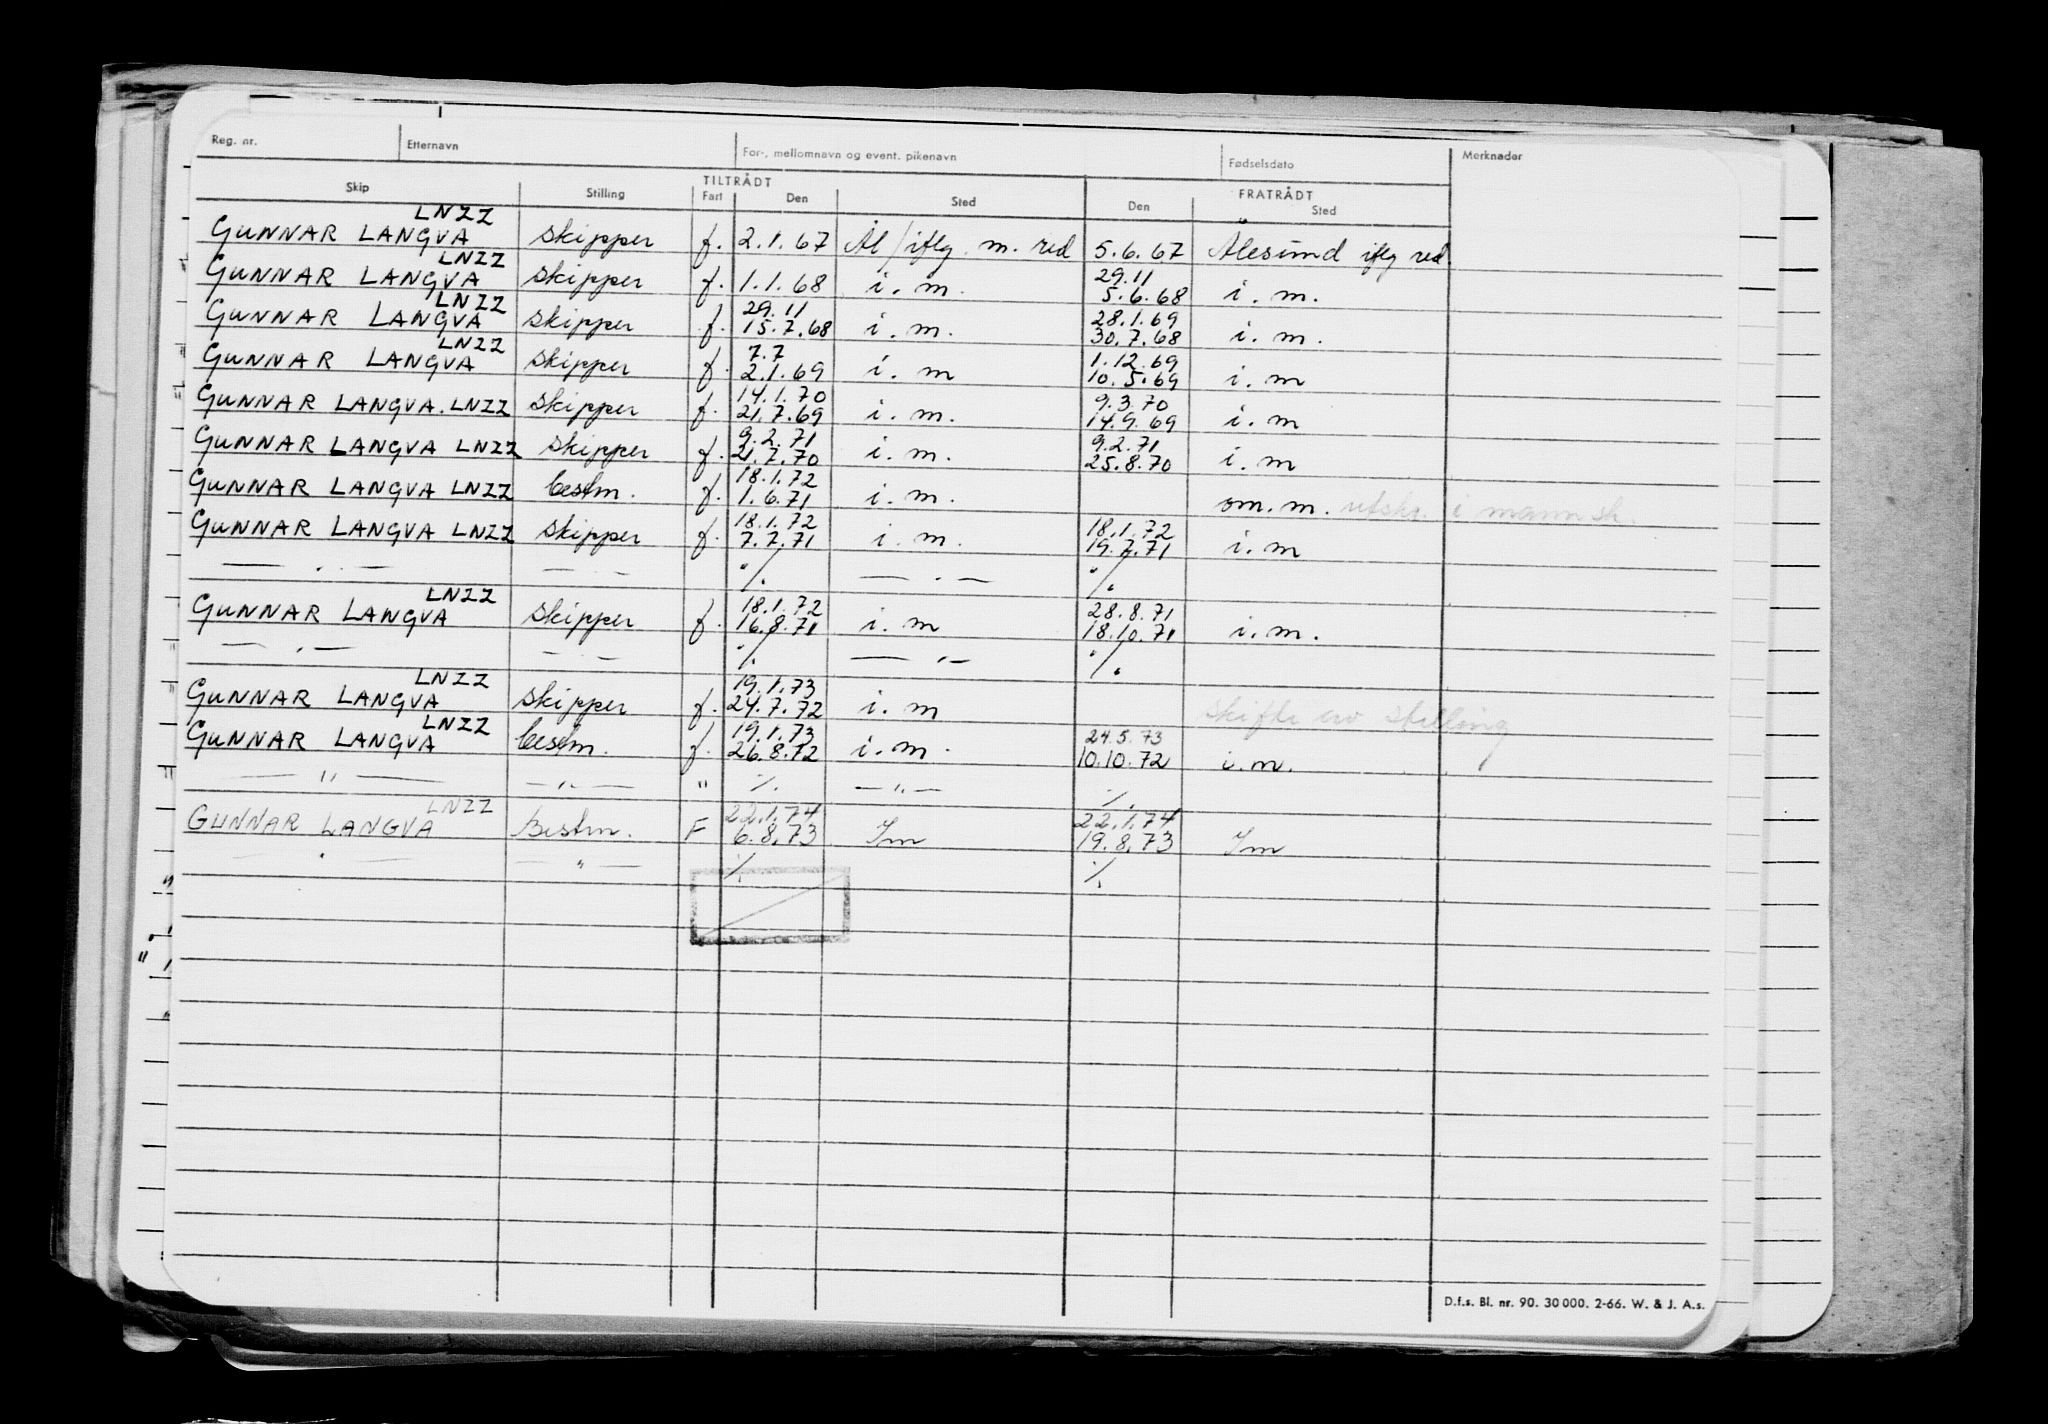 Reg. nr. Etternavn For-, mellomnavn og event. pikenavn Fødselsdato Merknader
Skip Stilling TILTRÅDT FRATRÅDT
Fart Den Sted Den Sted
LNZZ
GUNNAR LANGVA skipper f. 2.1.67 Ål/iflg. m. red 5.6.67 Ålesund iflg red.
LNZZ 29.11
GUNNAR LANGVA skipper f. 1.1.68 i. m. 5.6.68 i. m.
LNZZ 29.11 28.1.69
GUNNAR LANGVA skipper f. 15.7.68 i. m. 30.7.68 i. m.
LNZZ 7.7 1.12.69
GUNNAR LANGVA skipper f. 2.1.69 i. m 10.5.69 i. m
14.1.70 9.3.70
GUNNAR LANGVA. LNZZ skipper f. 21.7.69 i. m. 14.9.69 i. m
9.2.71 9.2.71
GUNNAR LANGVA LNZZ skipper f. 21.7.70 i. m. 25.8.70 i. m
18.1.72
GUNNAR LANGVA LNZZ bestm. f. 1.6.71 i. m. om. m. utskr. i mannsk.
18.1.72 18.1.72
GUNNAR LANGVA LNZZ skipper f. 7.7.71 i. m. 19.7.71 i. m
— . — — . — "/. — . — "/.
LNZZ 18.1.72 28.8.71
GUNNAR LANGVA skipper f. 16.8.71 i. m 18.10.71 i. m.
— , — — . — "/. — , — "/.
LNZZ 19.1.73
GUNNAR LANGVA skipper f. 24.7.72 i. m skifte av stilling
LNZZ 19.1.73 24.5.73
GUNNAR LANGVA bestm. f. 26.8.72 i. m. 10.10.72 i. m.
— " — — " — " "/. — " — "/.
LNZZ 22.1.74 22.1.74
GUNNAR LANGVA Bestm. F 6.8.73 Im 19.8.73 Im
— " — — " — "/. "/.
D.f.s. Bl. nr. 90. 30 000. 2-66. W. & J. A.s.